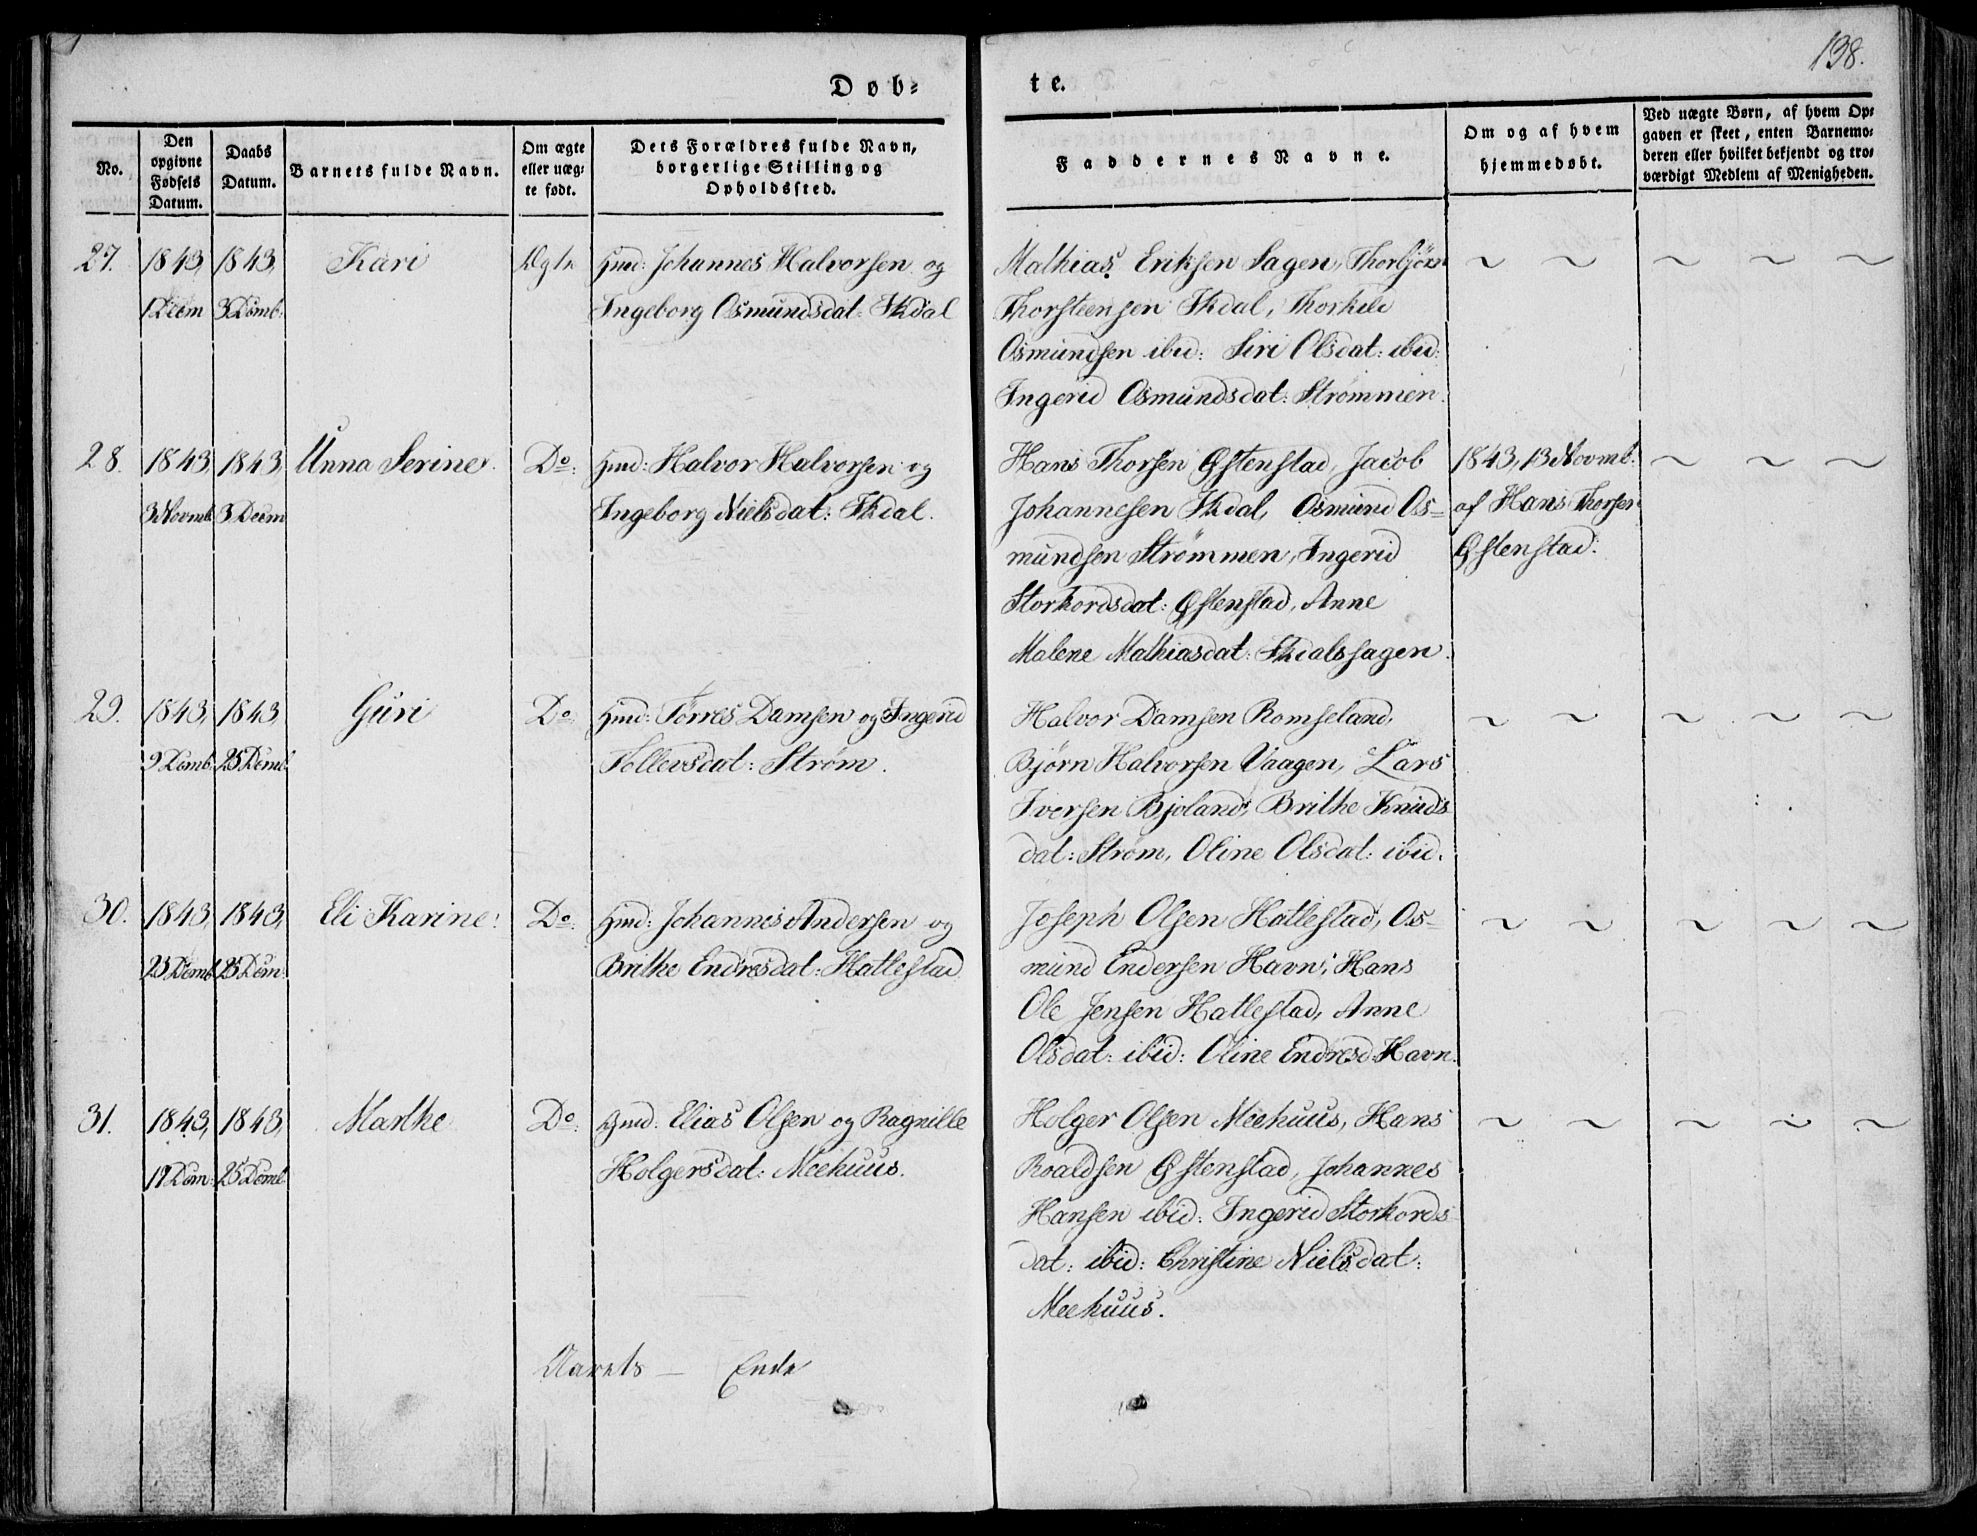 138.
Døb-
te.
No.
Den
opgivne
Fødsels
Datum.
Daabs
Datum.
Barnets fulde Navn.
Om ægte
eller uæg-
te født.
Dets Forældres fulde Navn,
borgerlige Stilling og
Opholdssted.
Faddernes Navne.
Om og af hvem
hjemmedøbt.
Ved uægte Børn, af hvem Op-
gaven er skeet, enten Barnemo-
deren eller hvilket bekjendt og tro-
værdigt Medlem af Menigheden.
27.
1843,
1843,
Kari
Ægte
Hmd: Johannes Halvorsen og
Ingeborg Osmundsdat:
Mathias Eriksen Sagen, Thorbjørn
Thorsteensen
Osmundsen ibid: Siri Olsdat: ibid:
Ingerid Osmundsdat: Strømmen.
28.
1843,
3 Novmb
1843,
Anna Serine.
Do:
Hmd: Halvor Halvorsen og
Ingeborg Nielsdat:
Hans Thorsen Østenstad, Jacob
Johannesen
Osmund Os-
mundsen Strømmen, Ingerid
Storkordsdat: Østenstad, Anne
Malene Mathiasdat:
1843, 13 Novmb:
af Hans Thorsen
Østenstad.
29.
1843,
9 Demb:
1843,
25 Demb:
Guri
Do:
Hmd: Tørres Damsen og Ingerid
Tollevsdat: Strøm.
Halvor Damsen Romseland,
Bjørn Halvorsen Vaagen, Lars
Iversen Bjoland, Brithe Knuds
dat: Strøm, Oline Olsdat: ibid.
30.
1843,
1843,
Eli Karine.
Do:
Hmd: Johannes Andersen og
Brithe Endresdat: Hatlestad
Joseph Olsen Hatlestad, Os-
mund Endersen Havn, Hans
Ole Jensen Hatlestad, Anne
Olsdat: ibid: Oline Endresd: Havn.
31.
1843,
1843,
25 Demb:
Marthe
Do:
Hmd: Elias Olsen og Ragnille
Holgersdat: Meehuus.
Holger Olsen Meehuus, Hans
Roaldsen Østenstad, Johannes
Hansen ibid: Ingerid Storkords
dat: ibid: Christine Nielsdat:
Meehuus.
Aarets — Ende